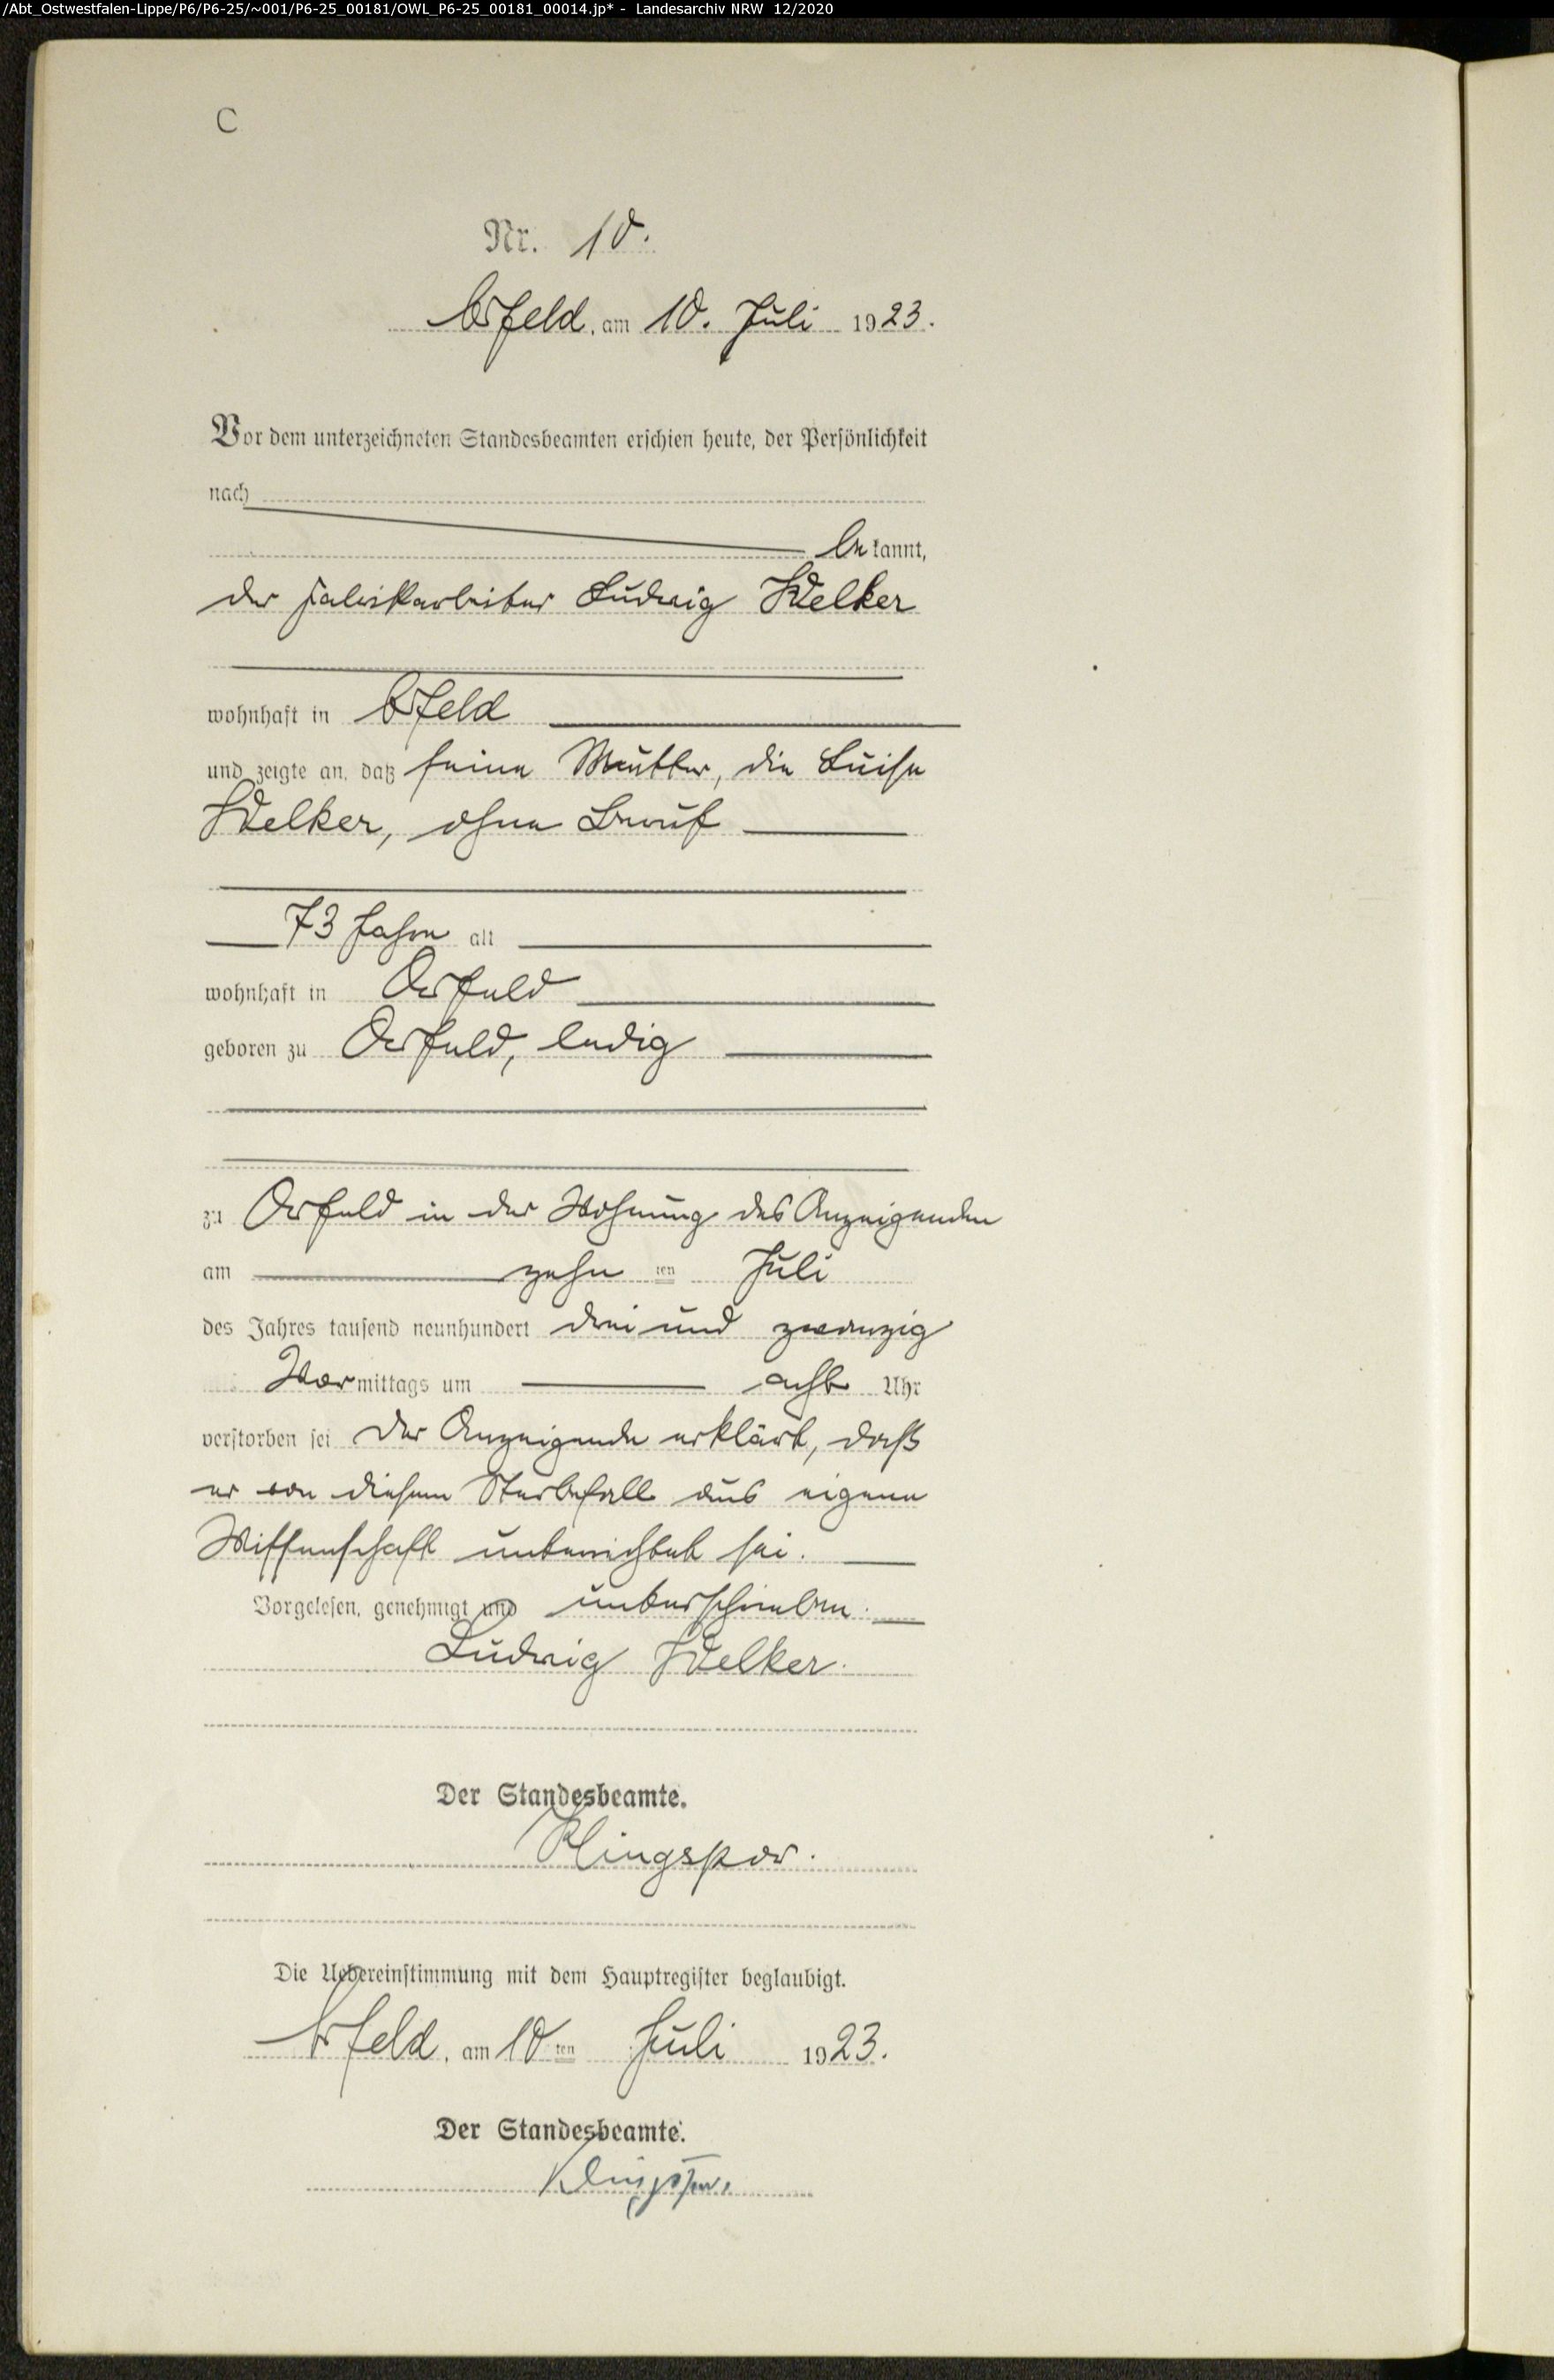 /Abt_Ostwestfalen-Lippe/P6/P6-25/~001/P6-25_00181/OWL_P6-25_00181_00014.jp* - Landesarchiv NRW 12/2020
C
Nr. 10.
Arfeld, am 10. Juli 1923.
Vor dem unterzeichneten Standesbeamten erschien heute, der Persönlichkeit
nach
bekannt,
der Fabrikarbeiter Ludwig Welker
wohnhaft in Arfeld
und zeigte an, daß seine Mutter, die Luise
Welker, ohne Beruf
73 Jahre alt
wohnhaft in Arfeld
geboren zu Arfeld, ledig
zu Arfeld in der Wohnung des Anzeigenden
am zehnten Juli
des Jahres tausend neunhundert drei und zwanzig
Vormittags um acht Uhr
verstorben sei Der Anzeigende erklärt, daß
er von diesem Sterbefall aus eigene
Wissenschaft unterrichtet sei.
Vorgelesen, genehmigt und unterschrieben.
Ludwig Welker.
Der Standesbeamte.
Klingspor.
Die Uebereinstimmung mit dem Hauptregister beglaubigt.
Arfeld, am 10ten Juli 1923.
Der Standesbeamte.
Klingspor.